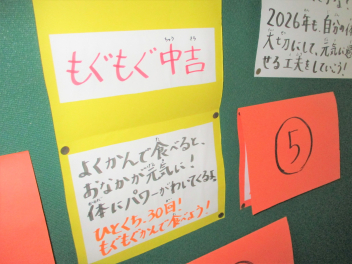 もぐもぐ中吉
よくかんで食べると、
おなかが元気に！
体にパワーがわいてくるよ
ひとくち、30回！
もぐもぐかんで食べよう！
2026年も、自分の体
大切にして、元気に過
せる工夫をしていこう！
⑤